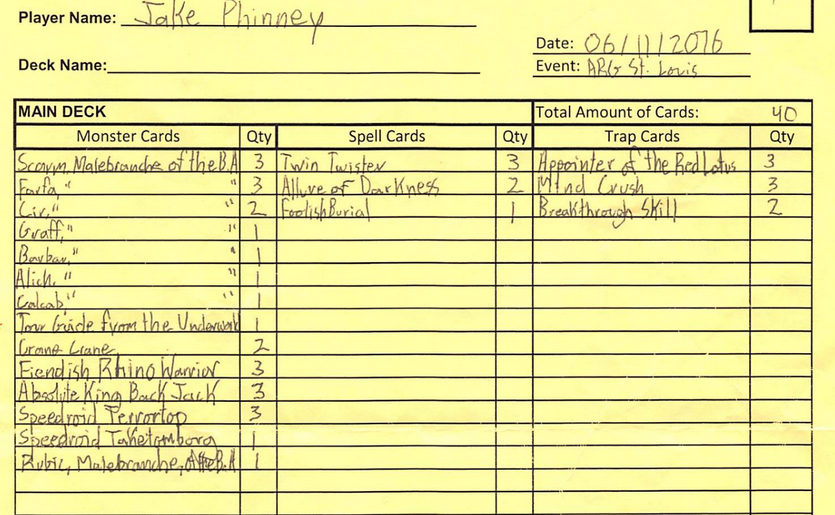 Player Name: Jake Phinney
Date: 06/11/2016
Deck Name:
Event: ARG St. Louis
MAIN DECK Total Amount of Cards: 40
Monster Cards Qty Spell Cards Qty Trap Cards Qty
Scarm, Malebranche of the B.A 3 Twin Twister 3 Appointer of the Red Lotus 3
Farfa, " " 3 Allure of Darkness 2 Mind Crush 3
Cir, " " 2 Foolish Burial 1 Breakthrough Skill 2
Graff, " " 1
Barbar, " " 1
Alich, " " 1
Calcab, " " 1
Tour Guide from the Underworld 1
Crane Crane 2
Fiendish Rhino Warrior 3
Absolute King Back Jack 3
Speedroid Terrortop 3
Speedroid Taketomborg 1
Rubic, Malebranche of the B.A 1